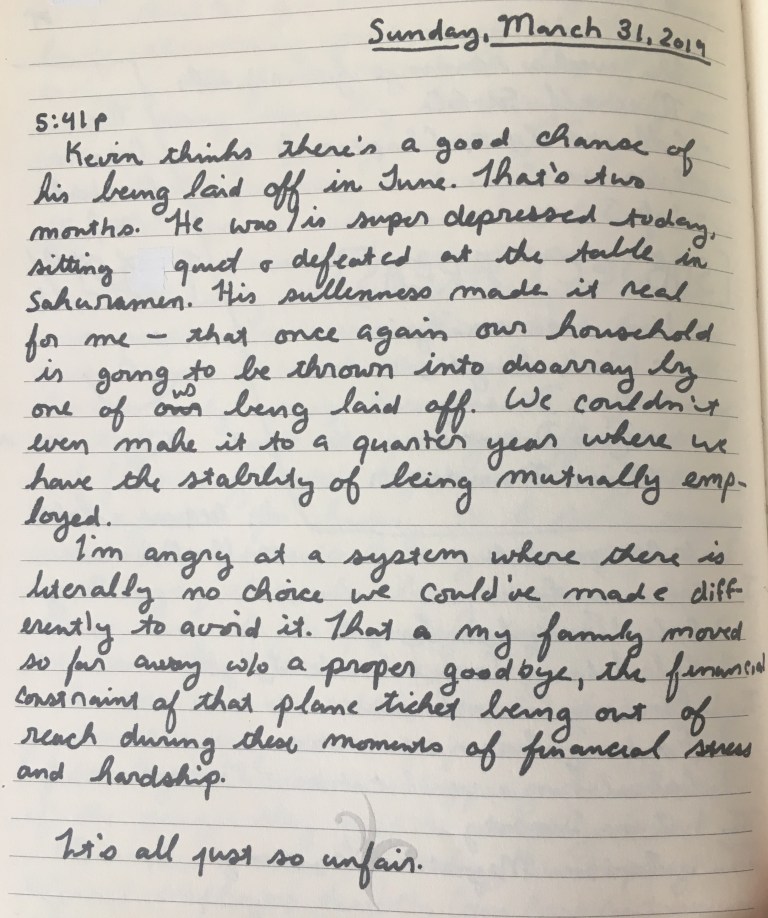 Sunday, March 31, 2019
5:41 P
Kevin thinks there's a good chanse of
his being laid off in June. That's two
months. He was/is super depressed today,
sitting quiet & defeated at the table in
Sakuramen. His sullenness made it real
for me – that once again our household
is going to be thrown into disarray by
one of us being laid off. We couldn't
even make it to a quarter year where we
have the stability of being mutually emp-
loyed.
I'm angry at a system where there is
literally no choice we could've made diff-
erently to avoid it. That a my family moved
so far away w/o a proper goodbye, the financial
constraint of that plane ticket being out of
reach during these moments of financial stress
and hardship.
It's all just so unfair.